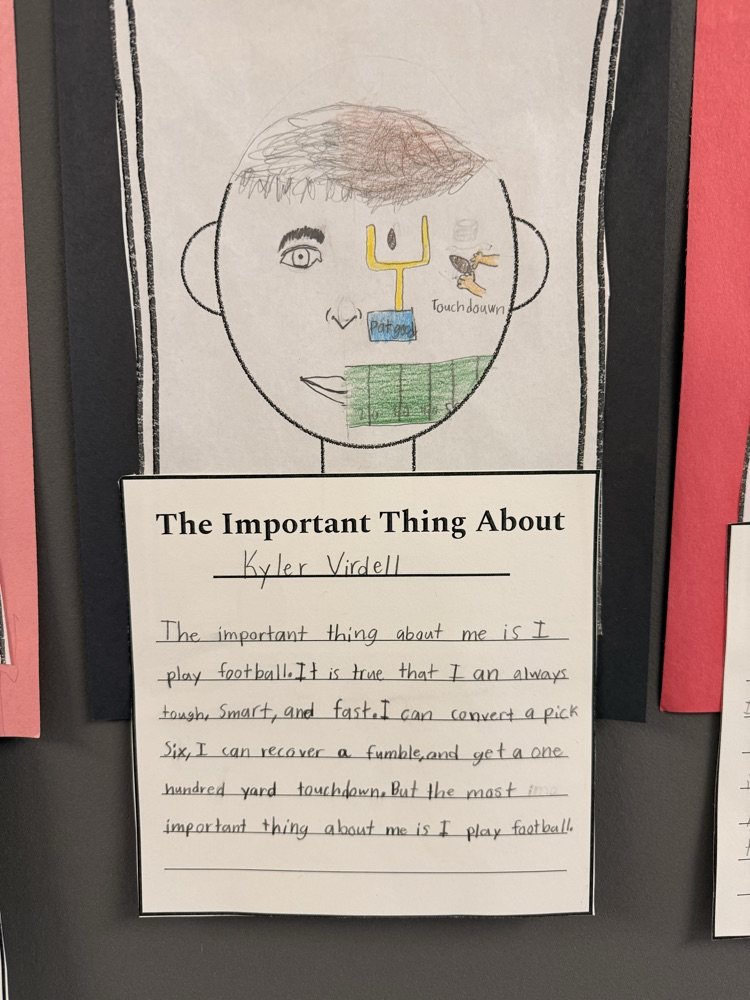 Touchdouwn
Pat good
The Important Thing About
Kyler Virdell
The important thing about me is I
play football. It is true that I an always
tough, Smart, and fast. I can convert a pick
Six, I can recover a fumble, and get a one
hundred yard touchdown. But the most
important thing about me is I play football.